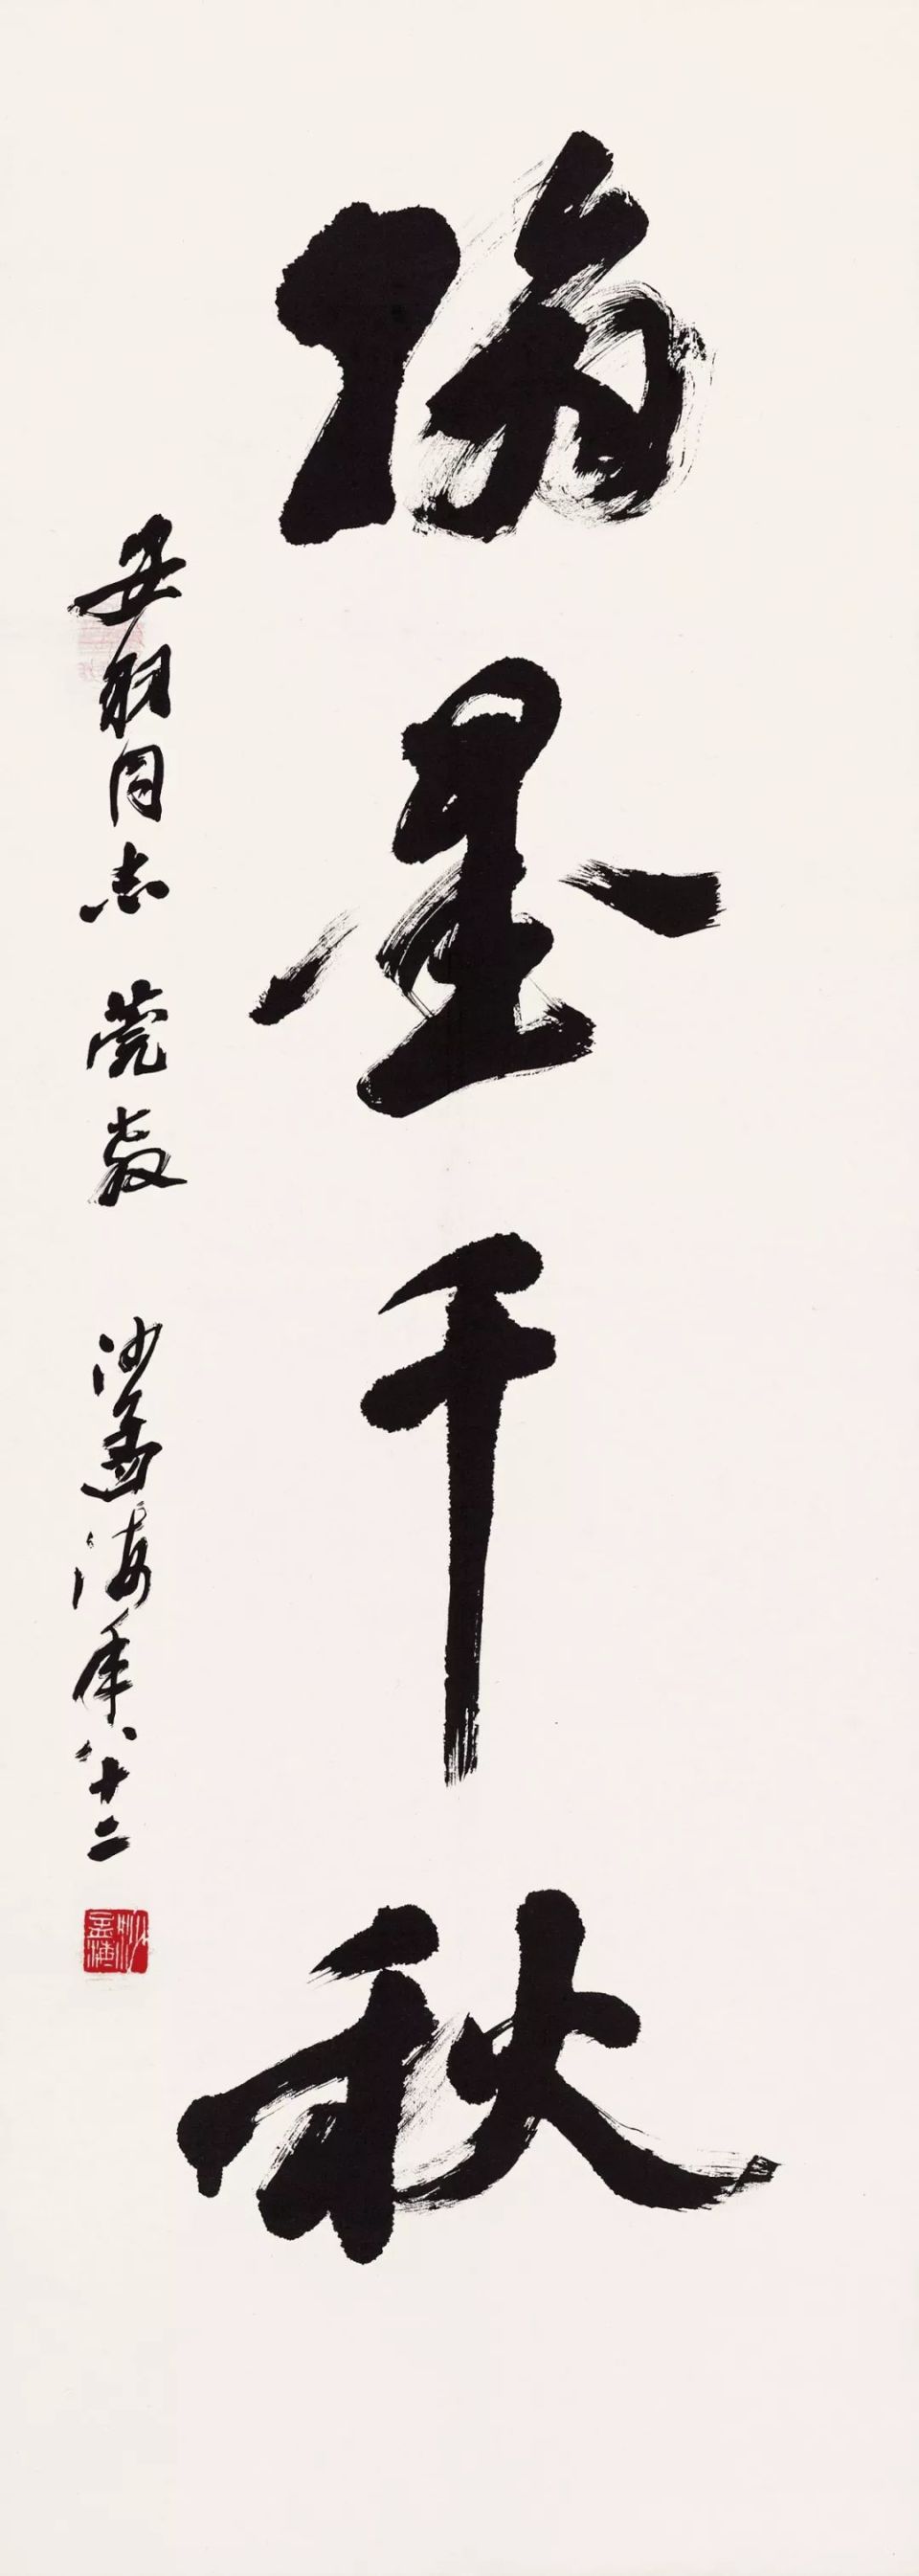 翰墨千秋
安羽同志 莞教
沙孟海年八十二
沙孟海